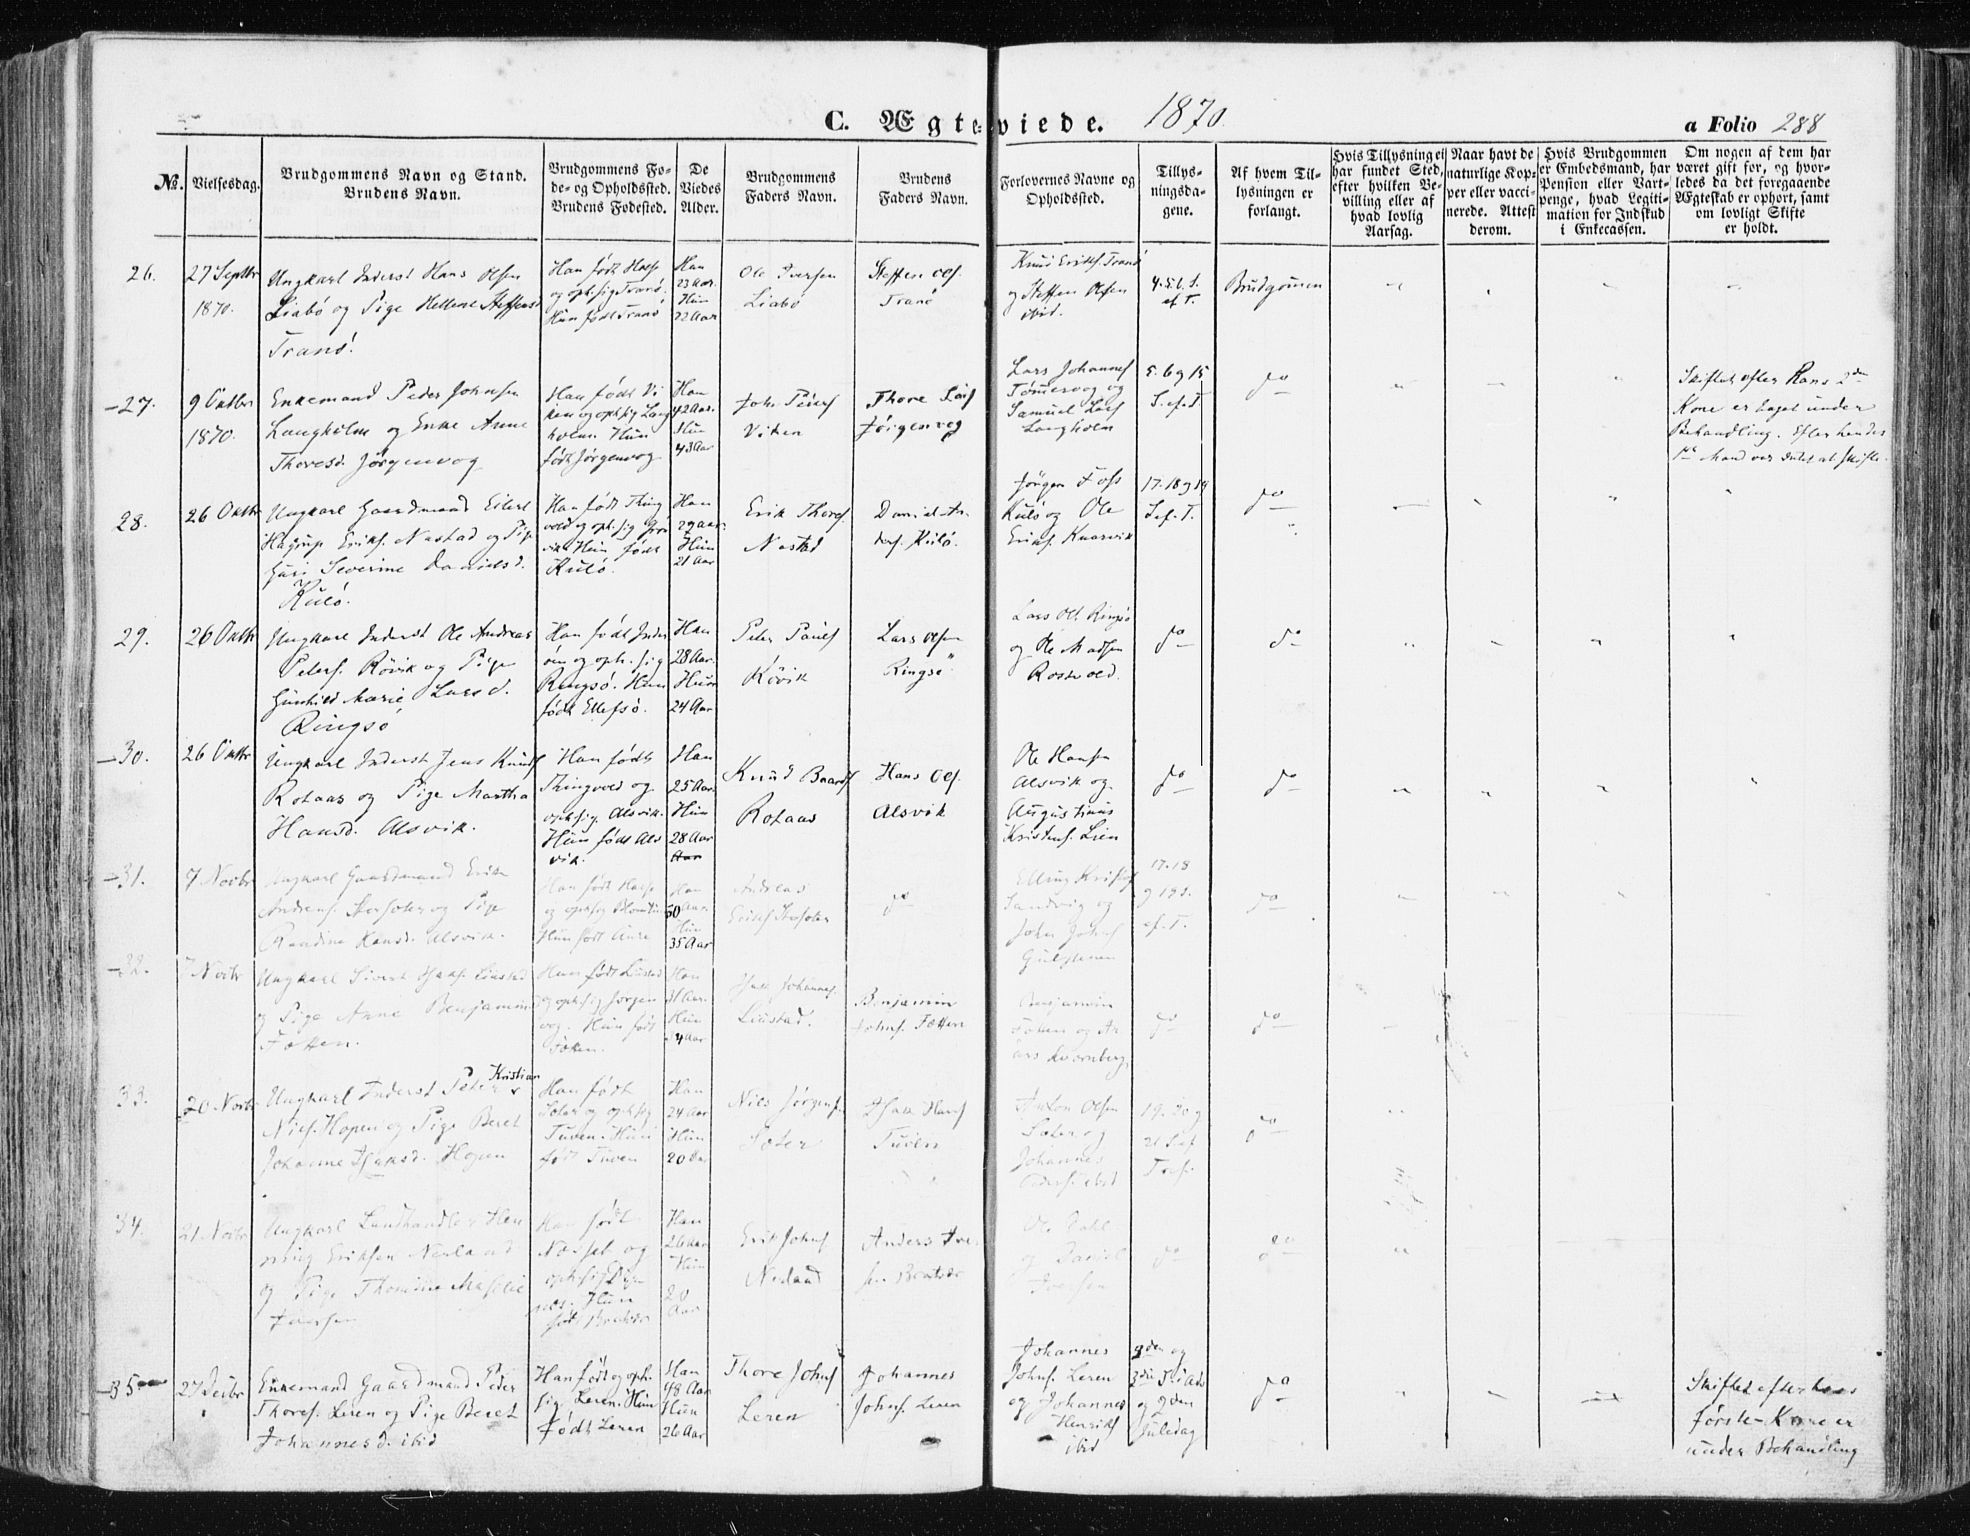 C. Ægteviede. 1870. a Folio 288
No.
Vielsesdag.
Brudgommens Navn og Stand.
Brudens Navn.
Brudgommens Fo-
de- og Opholdssted.
Brudens Fødested.
De
Viedes
Alder.
Brudgommens
Faders Navn.
Brudens
Faders Navn.
Forlovernes Navne og
Opholdssted.
Tillys-
ningsda-
gene.
Af hvem Til-
lysningen er
forlangt.
Hvis Tillysning ei
har fundet Sted,
efter hvilken Be-
villing eller af
hvad lovlig
Aarsag.
Naar havt de
naturlige Kop-
per eller vacci-
nerede. Attest
derom.
Hvis Brudgommen
er Embedsmand, har
Pension eller Vart-
penge, hvad Legiti-
mation for Indskud
i Enkecassen.
Om nogen af dem har
været gift før, og hvor-
ledes da det foregaaende
Ægteskab er ophørt, samt
om lovligt Skifte
er holdt.
26.
27 Septbr
1870.
Ungkarl Inderst Hans Olsen
Liabø og Pige Hellene Steffensd
Tranö.
Han født Halse
og oph. sig Tranö.
Hun født Tranö
Han
23 Aar.
Hun
22 Aar
Ole Iversen
Liabö
Steffen Ols.
Tranö
Knud Eriks. Tranö
og Steffen Olsen
ibid.
4. 5. 6. S.
ef. T.
Brudgommen
27.
9 Oktbr
1870.
Enkemand Peder Johnsen
Langholm og Enke Anne
Thoresd. Jörgenvog
Han født Vi
ken og oph. sig Lang
holm. Hun
født Jörgenvog
Han
42 Aar.
Hun
43 Aar
John Peders
Viken
Thore Lars
Jörgenvog
Lars Johannes
Tömmervog og
Samuel Lars
Langholm
5. 6 og 15
S. ef. T.
do
Skiftet efter Hans 2den
Kone er taget under
Behandling. Efter hendes
1ste Mand var Intet at skifte.
28.
26 Oktbr
Ungkarl Gaardmand Eilert
Hagrup Eriks. Nastad og Pige
Guri Severine Danielsd.
Kulö.
Han født Thing
vold og oph. sig
vik. Hun født
Kulö.
Han
29 Aar.
Hun
21 Aar
Erik Thores.
Nastad
Daniel An
ders. Kulö.
Jörgen Foss
Kulö og Ole
Eriks. Knarvik
17. 18 og 19
S. ef. T.
do
29.
26 Oktbr
Ungkarl Inderst Ole Andreas
Peters. Rövik og Pige
Gunhild Marie Larsd.
Ringsö
Han født Inder
öen og oph. sig
Ringsö. Hun
født Ellefsö.
Han
28 Aar.
Hun
24 Aar
Peter Pauls
Rövik
Lars Olsen
Ringsö
Lars Ols. Ringsö
og Ole Madsen
Rosvold.
do
do
30.
26 Oktbr
Ungkarl Inderst Jens Knuds
Rotaas og Pige Martha
Hansd. Alsvik.
Han født
Thingvold og
oph. sig Alsvik.
Hun født Als
vik.
Han
25 Aar.
Hun
28 Aar
Knud Baards
Rotaas
Hans Ols.
Alsvik
Ole Hansen
Alsvik og
Augustinus
Kristens. Lien
do
do
31.
7 Novbr
Ungkarl Gaardmand Erik
Andreas. og Pige
Randine Hansd. Alsvik.
Han født Halse
og oph. sig
Hun født Aure
Han
50 Aar.
Hun
35 Aar
Andreas
Eriks.
do
Elling Kristof
Sandvig og
John Johns
17. 18
og 19 S.
ef. T.
do
32.
7 Novbr
Ungkarl Sivert Isaks. Liustad
og Pige Anne Benjamins
Fætten.
Han født Liustad
og oph. sig Jörgen
vog. Hun født
Fætten.
Han
Aar.
Hun
Aar
Isak Johannes.
Liustad.
Benjamin
Johns. Fætten
Benjamin
Fætten og
Kvernberg.
do
do
33.
20 Novbr
Ungkarl Inderst Peter Kristian
Niels. Hopen og Pige Beret
Johanne Isaksd. Hopen
Han født
Sæter og oph. sig
Tuven. Hun
født Tuven
Han
24 Aar
Hun
20 Aar
Niels Jörgensen
Sæter
Isak Hans
Tuven
Anton Olsen
Sæter og
Johannes
Peders. ibid
19. 20 og
21 S. ef.
Tref.
do
34.
21 Novbr
Ungkarl Landhandler Hen
ning Eriksen Nerland
og Pige Thomine
Iversen
Han født
Næsset og
oph. sig
næs. Hun
født Bratvær
Han
26 Aar
Hun
20
Aar
Erik Johns
Nerland
Anders Iver
sen Bratvær
Ole Dahl
og Daniel
Iversen
do
do
35
27 Decbr
Enkemand Gaardmand Peder
Thores. Leren og Pige Beret
Johannesd. ibid
Han født og oph.
sig Leren. Hun
født Leren
Han
48 Aar
Hun
26 Aar
Thore Johns
Leren
Johannes
Johns. Leren
Johannes
Johns. Leren
og Johannes
Henriks
ibid
2den og
3die S. i Adv
og 2den
Juledag
do
Skiftet efter hans
første Kone er
under Behandling